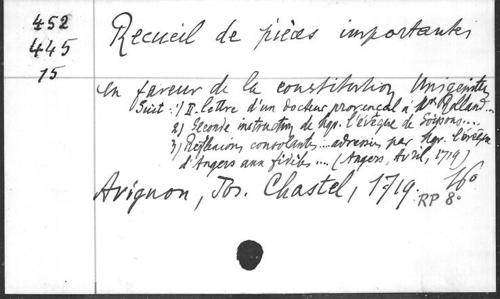 452
445
15
Recueil de pièces importantes
en faveur de la constitution Unigenitus
Suit: 1) IIe lettre d'un docteur provençal à Mr. Rolland...
2) Seconde instruction de Mgr. l'évêque de Soissons....
3) Réflexions consolantes... adressées par Mgr. l'évêque
d'Angers aux fidèles .... (Angers, Avril, 1719)
Avignon, Jos. Chastel, 1719. 16°
RP 8°